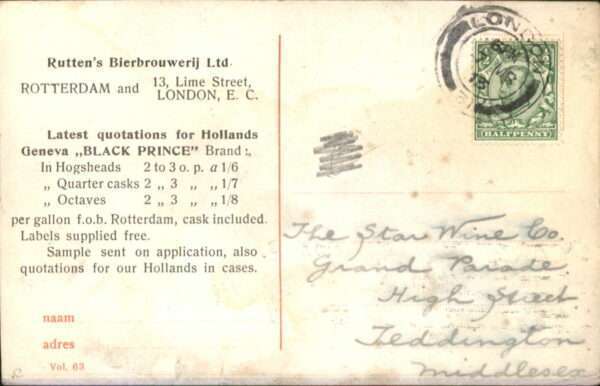 Rutten's Bierbrouwerij Ltd.
ROTTERDAM and 13, Lime Street,
LONDON, E. C.
Latest quotations for Hollands
Geneva „BLACK PRINCE" Brand:
In Hogsheads 2 to 3 o. p. a 1/6
„ Quarter casks 2 „ 3 „ „ 1/7
„ Octaves 2 „ 3 „ „ 1/8
per gallon f.o.b. Rotterdam, cask included.
Labels supplied free.
Sample sent on application, also
quotations for our Hollands in cases.
naam
adres
Vol. 63
LONDON
HALFPENNY
The Star Wine Co.
Grand Parade
High Street
Teddington
Middlesex